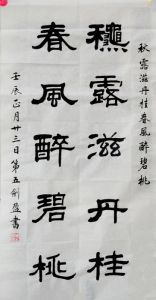 龝露滋丹桂
春風醉碧桃
秋露滋丹桂春風醉碧桃
壬辰正月廿三日第五劍盈書